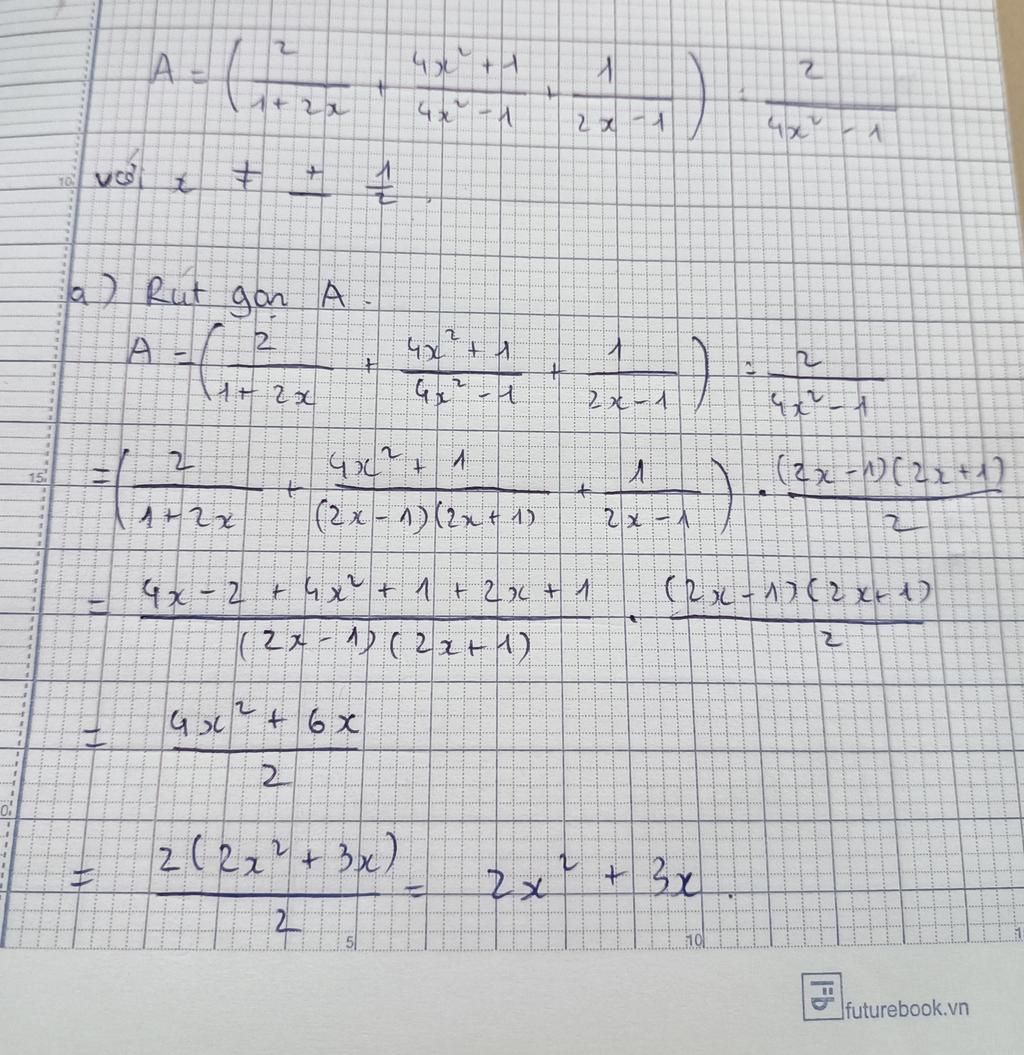 A = ( 2/(1+2x) + (4x²+1)/(4x²-1) + 1/(2x-1) ) : 2/(4x²-1)
10 với x ≠ ± 1/2.
a) Rút gọn A.
A = ( 2/(1+2x) + (4x²+1)/(4x²-1) + 1/(2x-1) ) : 2/(4x²-1)
15 = ( 2/(1+2x) + (4x²+1)/((2x-1)(2x+1)) + 1/(2x-1) ) . ((2x-1)(2x+1))/2
= (4x-2+4x²+1+2x+1)/((2x-1)(2x+1)) . ((2x-1)(2x+1))/2
= (4x²+6x)/2
= 2(2x²+3x)/2 = 2x²+3x.
5 10
futurebook.vn